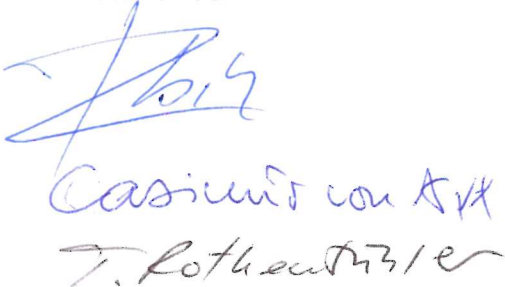 Casimir von Arx
T. Rothenbühler